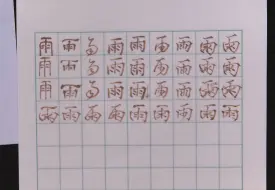 雨雨雨雨雨雨雨雨雨
雨雨雨雨雨雨雨雨雨
雨雨雨雨雨雨雨雨雨
雨雨雨雨雨雨雨雨雨